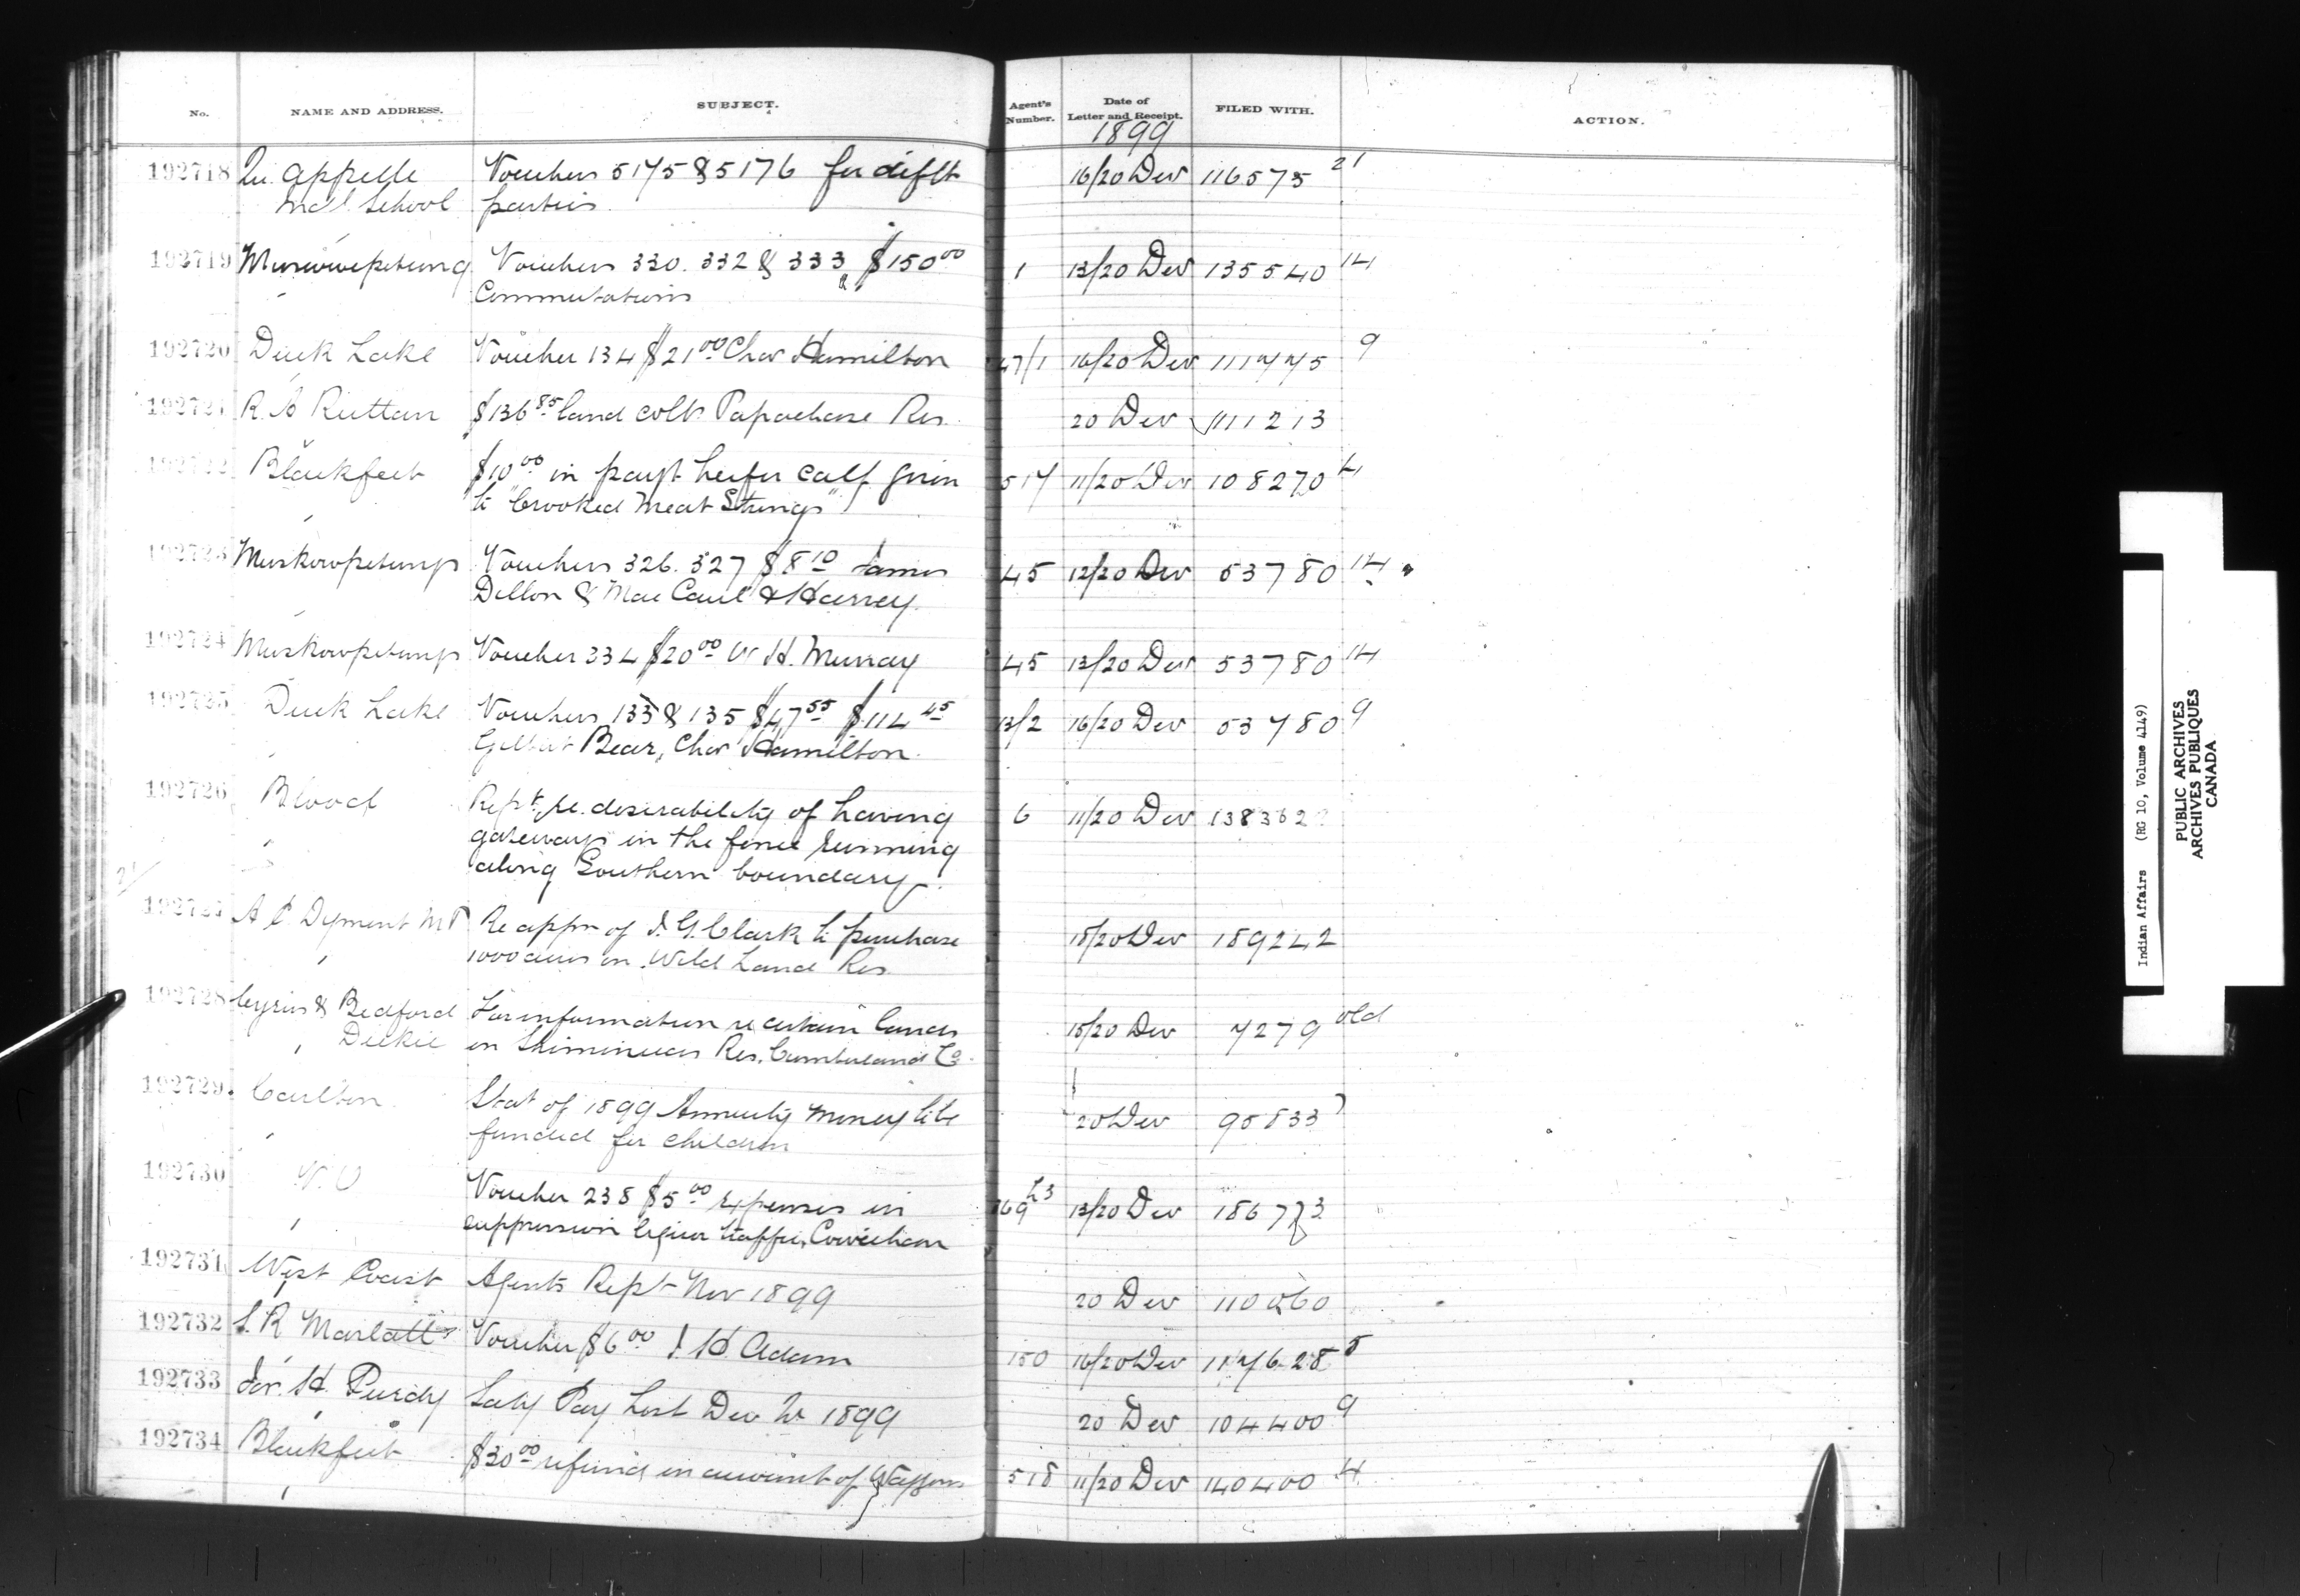 No. NAME AND ADDRESS. SUBJECT. Agent's Number. Date of Letter and Receipt. FILED WITH. ACTION.
1899
192718 Qu'appelle Vouchers 5175 & 5176 for difft 16/20 Dec 116575 21
Ind'l School parties
192719 Muscowpetung Vouchers 330. 332 & 333, $150 00 1 13/20 Dec 135540 14
Commutations
192720 Duck Lake Voucher 134 $21 00 Chas Hamilton 47/1 16/20 Dec 111775 9
192721 R. A Ruttan $136 85 land colls Papachase Res. 20 Dec 111213
192722 Blackfeet $10 00 in payt heifer calf given 517 11/20 Dec 108270 4
to "Crooked Meat Strings"
192723 Muskowpetungs Vouchers 326. 327 $8 10 James 45 12/20 Dec 53780 14
Dillon & MacCaul & Harvey.
192724 Muskowpetungs Voucher 334 $20 00 W H. Murray 45 13/20 Dec 53780 14
192725 Duck Lake Vouchers 133 & 135 $47 55 $114 45 13/2 16/20 Dec 53780 9
Gilbert Bear, Chas Hamilton.
192726 Blood Rept. re. desirability of having 6 11/20 Dec 138362
gateways in the fence running
along Southern boundary.
192727 A E Dyment MP Re appn of J. G. Clark to purchase 18/20 Dec 189242
1000 acres on Wild Land Res
192728 Cyrus & Bedford For information re certain lands 18/20 Dec 7279 old
Dickie on Res. Cumberland Co.
192729 Carlton Stat of 1899 Annuity money to be 20 Dec 95833 7
funded for children
192730 V. O Voucher 238 $5 00 expenses in 169 13/20 Dec 186773
suppression liquor traffic, Cowichan
192731 West Coast Agents Rept Nov 1899 20 Dec 110060
192732 S. R Marlatt Voucher $6 00 J. H Adam 150 16/20 Dec 117628 5
192733 Jas. H. Purdy Saly Pay List Dec 1899 20 Dec 104400 9
192734 Blackfeet $30 00 refund on account of Waggons 518 11/20 Dec 140400 4
Indian Affairs (RG 10, Volume 4149)
PUBLIC ARCHIVES
ARCHIVES PUBLIQUES
CANADA